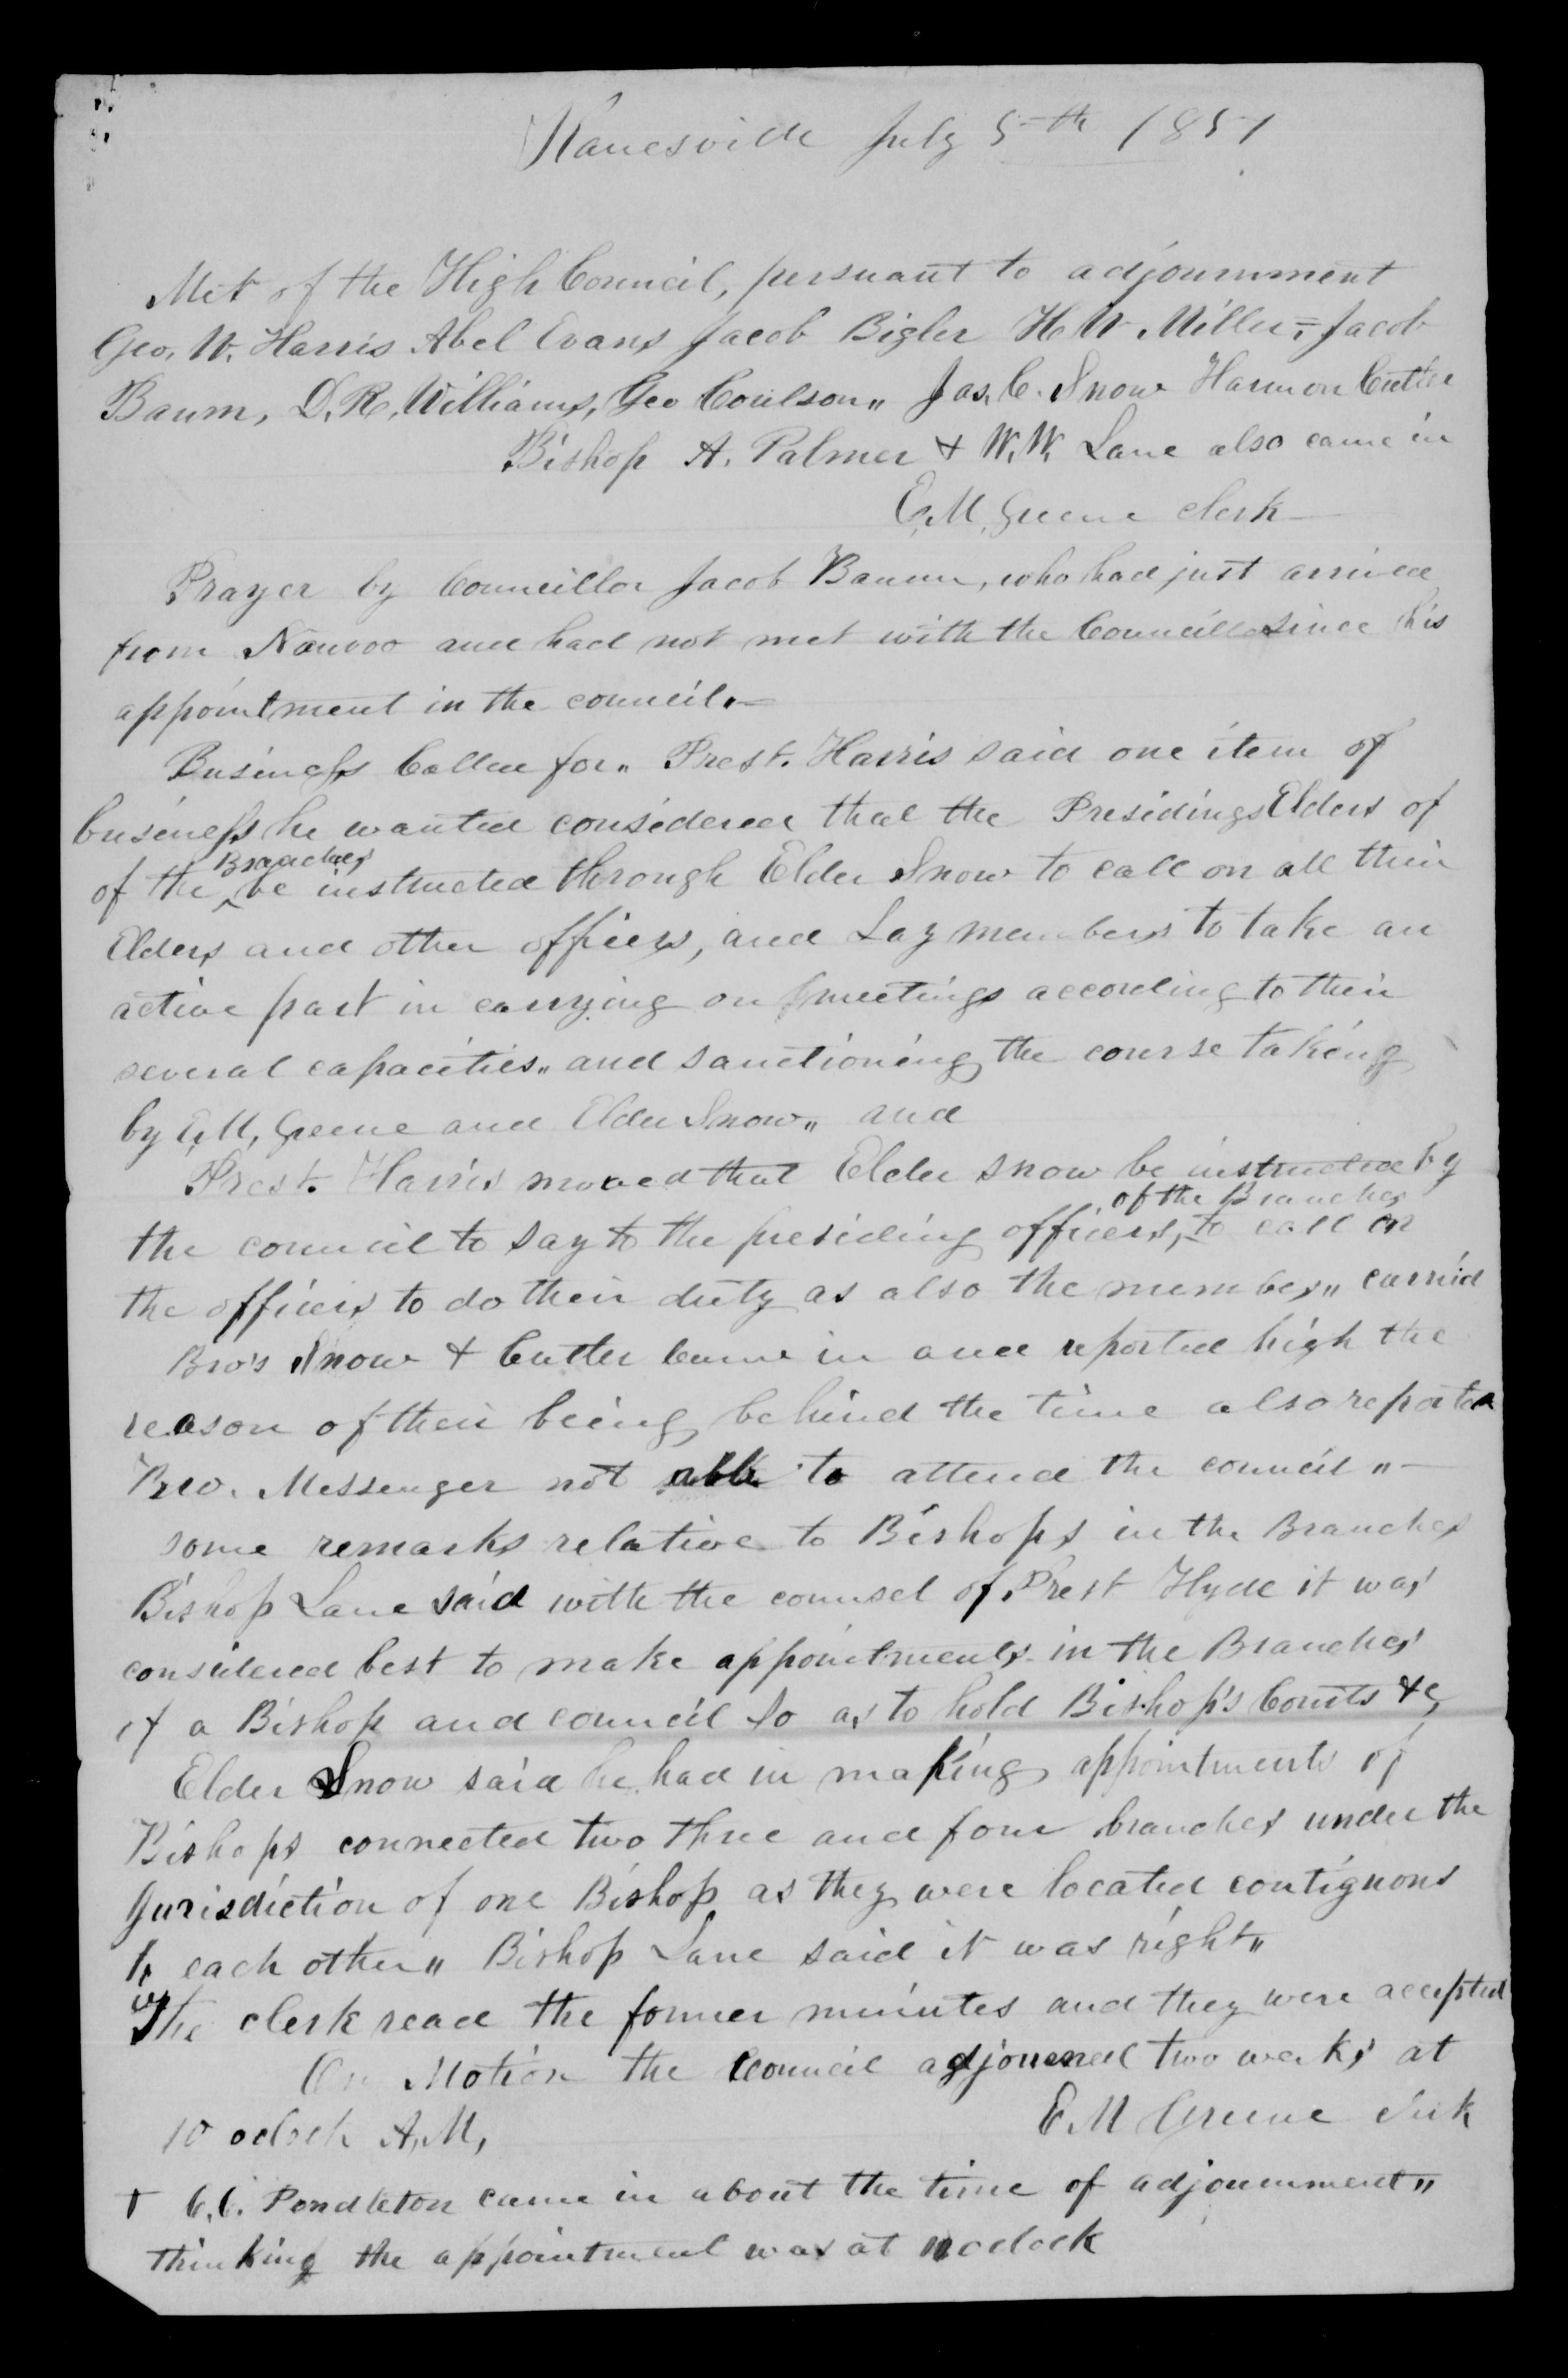 Kanesville July 5th 1851
Met of the High Council, persuant to adjournment
Geo. W. Harris Abel Evans Jacob Bigler H W Miller, = Jacob
Baum, D. R. Williams, Geo Coulson,, Jas. C. Snow Harmon Cutler
Bishop A. Palmer & W. W. Lane also came in
E. M. Greene clerk —
Prayer by Councillor Jacob Baum, who had just arrived
from Nauvoo and had not met with the Council since his
appointment in the council,, —
Business Called for,, Prest. Harris said one item of
business he wanted considered that the Presidings Elders of
of the ^Branches be instructed through Elder Snow to call on all their
Elders and other officers, and Lay members to take an
active part in carrying on meetings according to their
several capacities,, and sanctioning the course taking
by E. M, Greene and Elder Snow,, and
Prest. Harris moved that Elder Snow be instructed by
the council to say to the presiding officers, ^of the Branches to call on
the officers to do their duty as also the members,, carried
Bro's Snow & Cutler came in and reported high the
reason of their being behind the time also reported
Bro. Messenger not able to attend the council ,, —
some remarks relative to Bishops in the Branches
Bishop Lane said with the counsel of Prest Hyde it was
considered best to make appointments in the Branches
of a Bishop and council so as to hold Bishop's Courts &c,
Elder Snow said he had in making appointments of
Bishops connected two three and four branches under the
Jurisdiction of one Bishop as they were located contiguous
to each other,, Bishop Lane said it was right,,
The clerk read the former minutes and they were accepted
On Motion the Council adjourned two weeks at
10 oclock A, M,
E. M Greene clerk
C. C. Pendleton came in about the time of adjournment,,
thinking the appointment was at 11 oclock